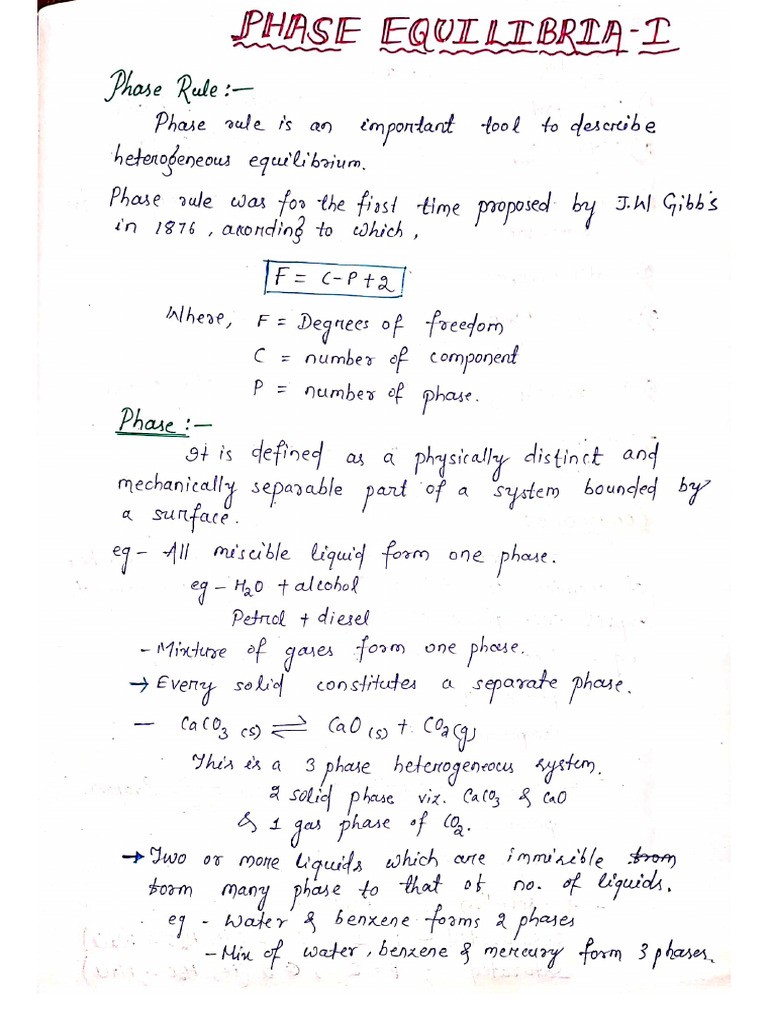 PHASE EQUILIBRIA-I
Phase Rule :-
Phase rule is an important tool to describe
heterogeneous equilibrium.
Phase rule was for the first time proposed by J.W Gibb's
in 1876, acording to which,
F = C-P+2
Where, F = Degrees of freedom
C = number of component
P = number of phase.
Phase :-
It is defined as a physically distinct and
mechanically separable part of a system bounded by
a surface.
eg - All miscible liquid form one phase.
eg - H₂O + alcohol
Petrol + diesel
- Mixture of gases form one phase.
→ Every solid constitutes a separate phase.
- CaCO₃ (s) ⇌ CaO (s) + CO₂(g)
This is a 3 phase heterogeneous system.
2 solid phase viz. CaCO₃ & CaO
& 1 gas phase of CO₂.
→ Two or more liquids which are immisible from
form many phase to that of no. of liquids.
eg - Water & benzene forms 2 phases
- Mix of water, benzene & mercury form 3 phases.